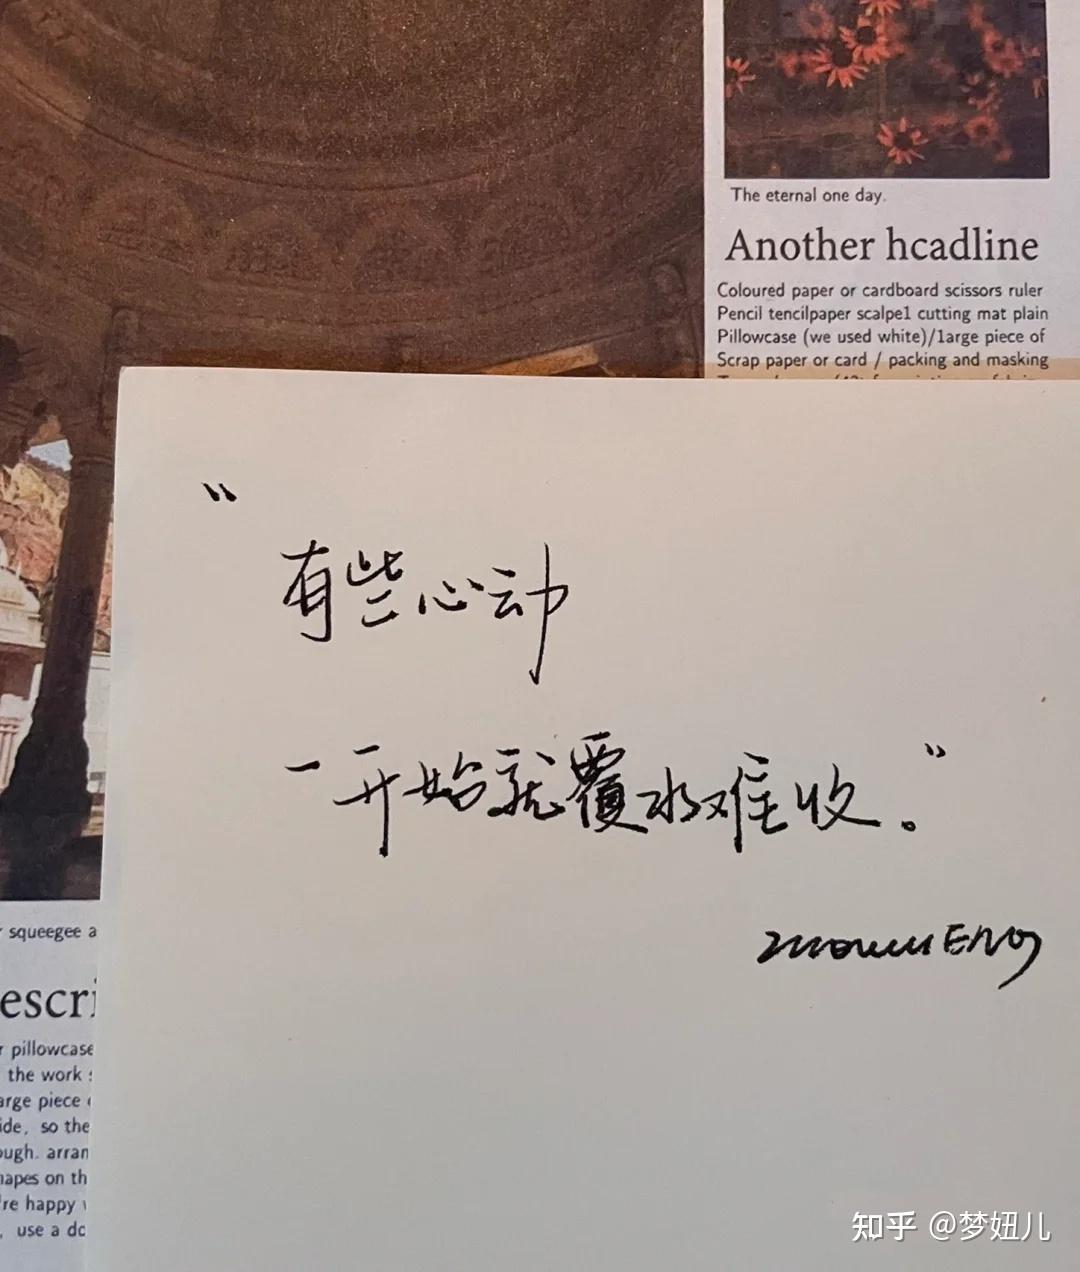 The eternal one day.
Another hcadline
Coloured paper or cardboard scissors ruler
Pencil tencilpaper scalpel cutting mat plain
Pillowcase (we used white)/large piece of
Scrap paper or card / packing and masking
“
有些心动
一开始就覆水难收。”
squeegee a
escri
r pillowcase
the work
arge piece
ide, so the
ough. arran
hapes on th
're happy
, use a dc
知乎 @梦妞儿